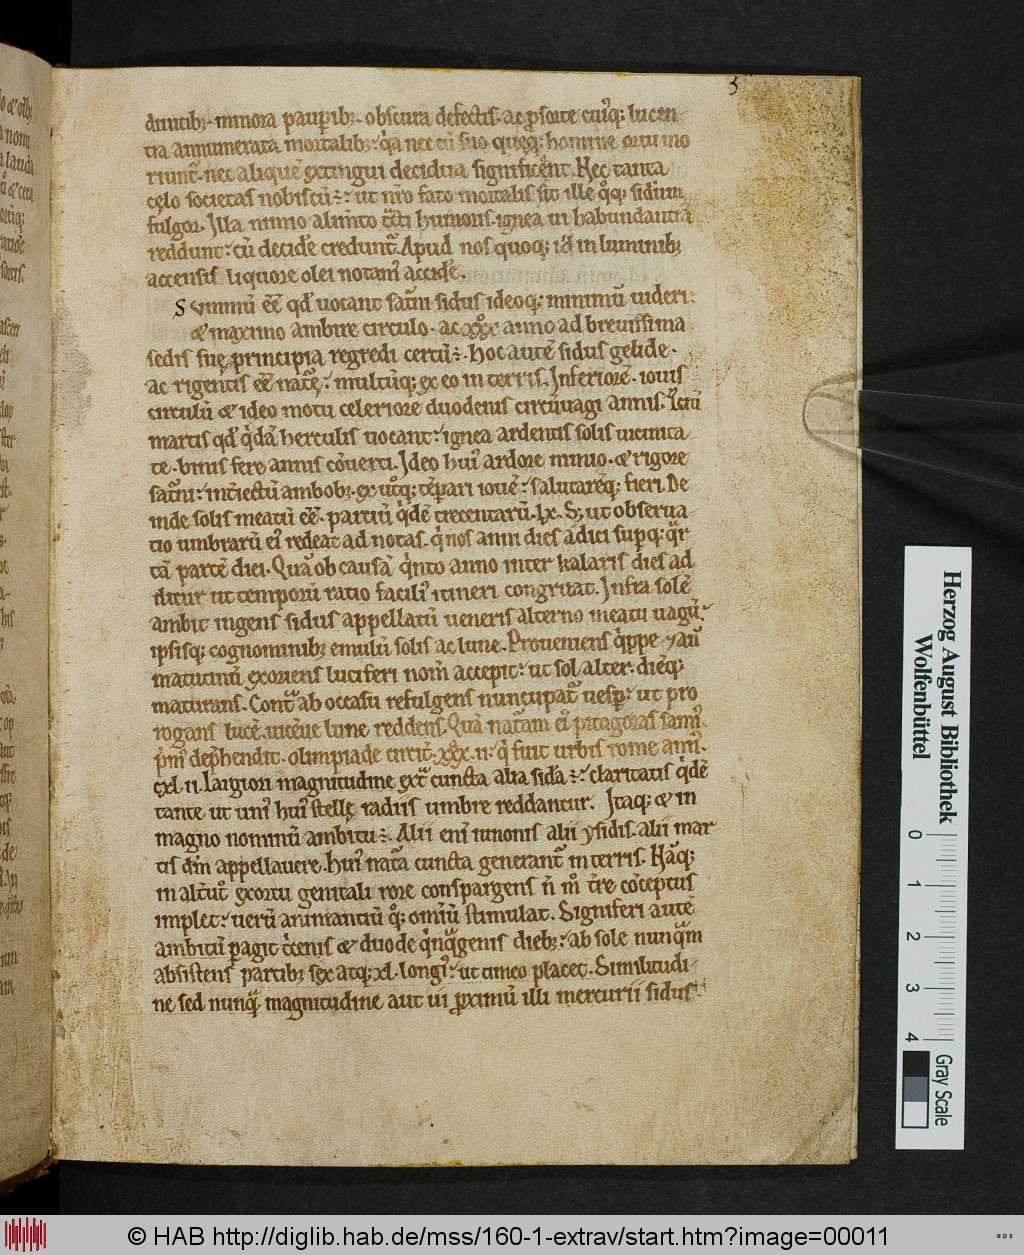 3
diuitib; minora paup̱ib; obscura defectis. ac p̱ sorte cuiq; lucen
tia annumerata mortalib; q̄a nec cū suo queq; homine ortu mo
riunt̄. nec aliquē extingui decidua significent. Hec tanta
cęlo societas nobiscū ÷ ut nr̄o fato mortalis sit ille q̊q; siderum
fulgor. Illa nimio alim̄to tͣcti humoris ignea ui habundantia
reddunt: cū decide᷑ credunt᷑. Apud nos quoq; id̄ in luminib;
accensis liquore olei notam᷑ accide᷑.
Summū ēē qd̄ uocant sat᷑ni sidus ideoq; minimū uideri:
& maximo ambire circulo. ac xxxͦ anno ad breuissima
sedis suę principia regredi certū ÷. Hoc autē sidus gelide
ac rigentis ēē nat᷑ę: multūq; ex eo in terris. Inferiorē iouis
circulū & ideo motu celeriore duodenis circūuagi annis. t᷑ciū
martis qd̄ q̇dā herculis uocant: ignea ardentis solis uicinita
te. binis fere annis cōuerti. Ideo huiꝰ ardore nimio & rigore
sat᷑ni: int᷑iectū ambob; ex ut̊q; tēperari iouē: salutareq; fieri. De
inde solis meatū ēē. partiū q̇dē trecentarū. lx. S; ut obserua
tio umbrarū eiꝰ redeat ad notas. q̇nos anni dies adici sup̱q; q̄r
tā partē diei. Quā ob causā q̇nto anno inter kalaris dies ad
ditur ut temporū ratio faciliꝰ itineri congruat. Infra solē
ambit ingens sidus appellatū ueneris alterno meatu uagū:
ipsisq; cognominib; emulū solis ac lune. Proueniens q̇ppe & an̄
matutinū exoriens luciferi nom̄ accepit: ut sol alter. diēq;
maturans. Contͣ ab occasu refulgens nuncupat᷑ uesp̱: ut pro
rogans lucē. uicēue lune reddens. Quā nat᷑am eiꝰ pitagoras samiꝰ.
p̄mꝰ dep̱hendit. olimpiade circit᷑. xxx. ii. q̇ fuit urbis rome anniꝰ.
cxl. ii. Largiori magnitudine extͣ cuncta alia sid᷑a ÷: claritatis q̇dē
tante ut uniꝰ huiꝰ stellę radiis umbre reddantur. Itaq; & in
magno nominū ambitu ÷. Alii eni᷑ iunonis alii ysidis. alii mar
tis dm̄ appellauere. Huiꝰ nat᷑a cuncta generant᷑ in terris. Nāq;
in alt᷑ut̊ exortu genitali rore conspargens n̄ m̊ t᷑re cōceptus
implet: uerū animantiū q̊; omniū stimulat. Signiferi autē
ambitū pagit t᷑cenis & duode q̇nq̄genis dieb;: ab sole nunq̄m
absistens partib; sex atq; xl. longiꝰ: ut timeo placet. Similitudi
ne sed nunq̄ magnitudine aut ui p̱ximū illi mercurii sidus
Herzog August Bibliothek
Wolfenbüttel
0 1 2 3 4
Gray Scale
© HAB http://diglib.hab.de/mss/160-1-extrav/start.htm?image=00011